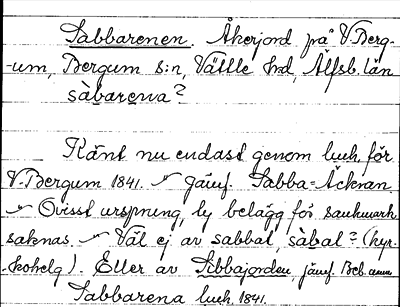 Sabbarenen. Åkerjord på V. Berg-
-um, Bergum s:n, Vättle hd, Älfsb. län
sàbarena?
Känt nu endast genom luck för
V. Bergum 1841. Jämf. Sabba-Åcknan.
Ovisst ursprung, ty belägg för sankmark
saknas. Väl ej av sabbat, sàbal? (kyr-
-kohelg). Eller av Sibbajorden, jämf. Beb. namn
Sabbarena luck 1841.